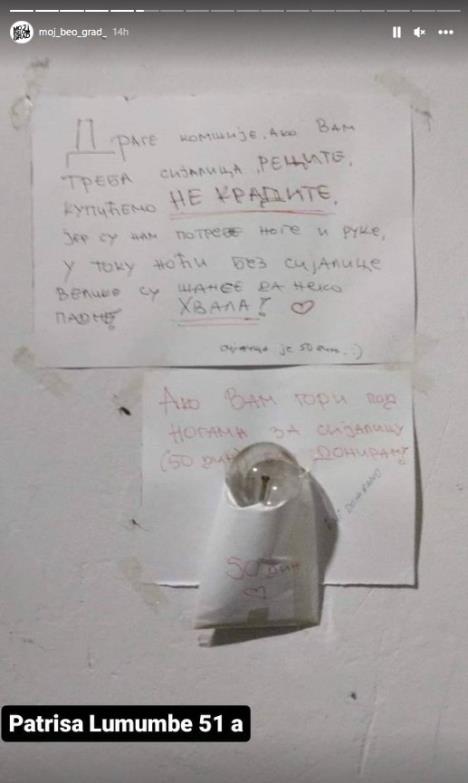 moj_beo_grad_ 14h
Драге комшије, ако Вам
треба сијалица, реците,
купићемо НЕ КРАДИТЕ,
јер су нам потребе ноге и руке,
у току ноћи без сијалице
велике су шансе да неко
падне ХВАЛА! ♡
сијалица је 50 дин. :)
Ако Вам гори под
ногама за сијалицу
(50 дин) донирам!
50 дин
♡
Patrisa Lumumbe 51 a